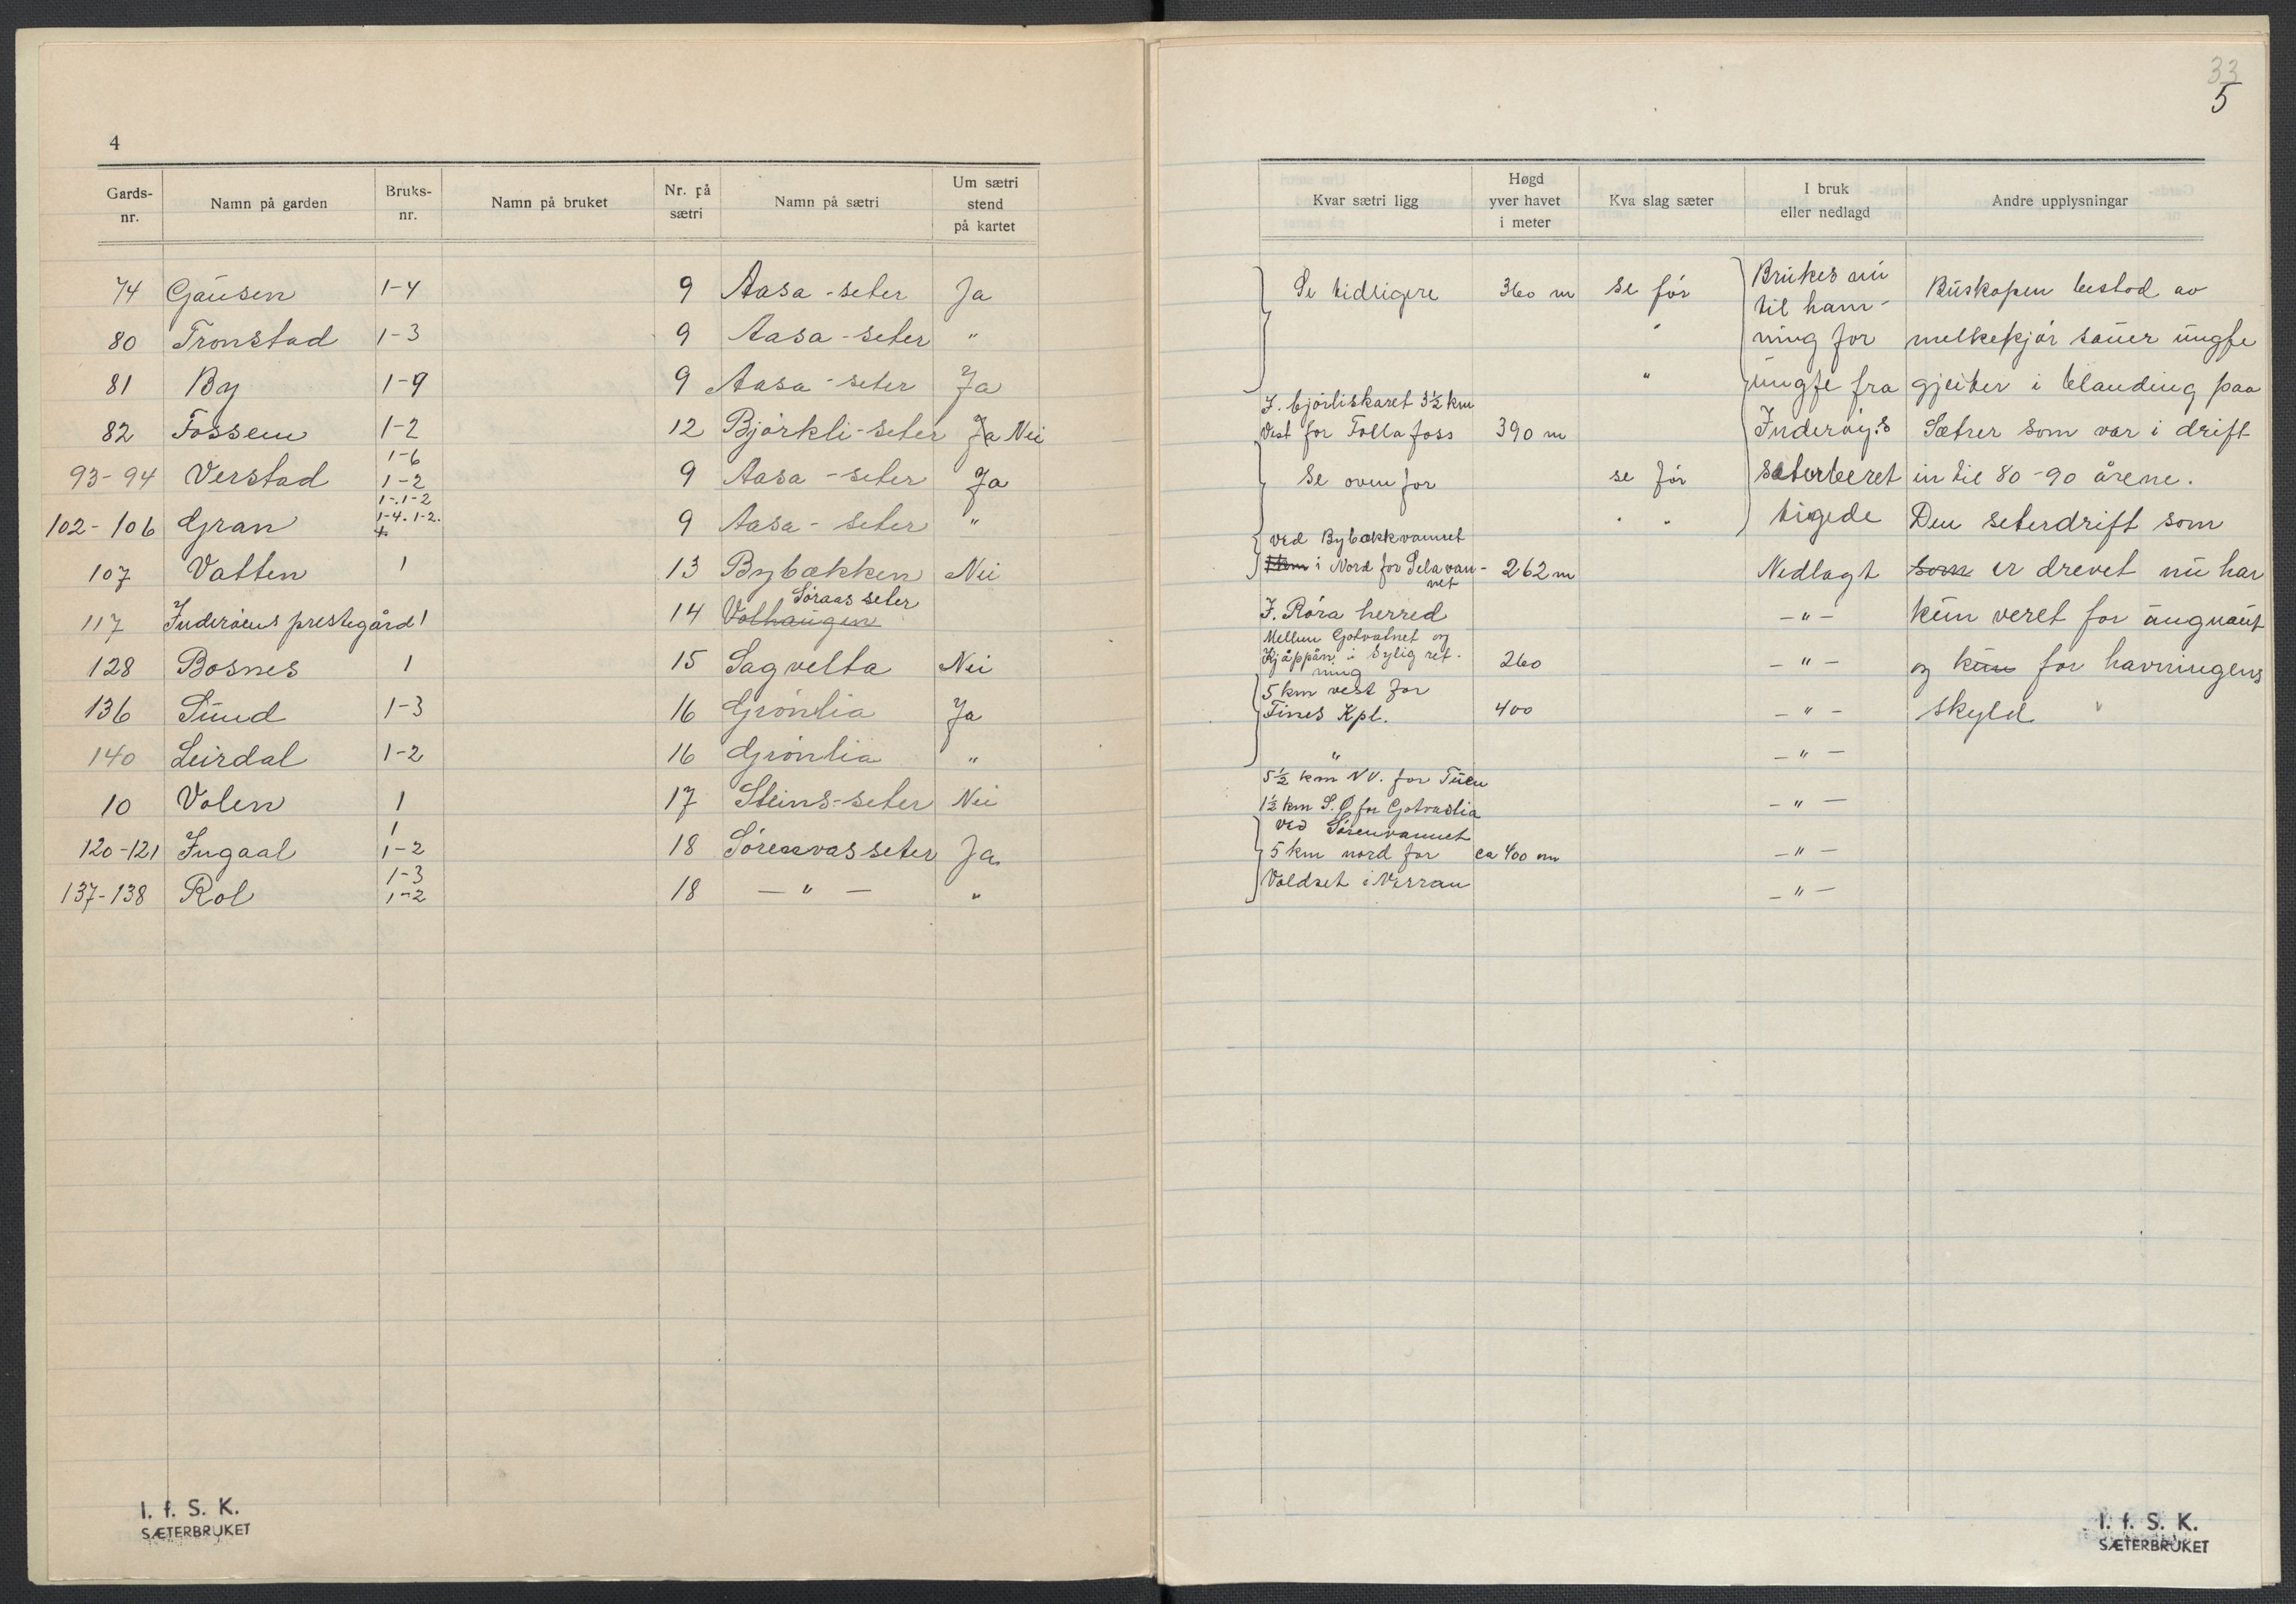 4
Gards-nr. Namn på garden Bruks-nr. Namn på bruket Nr. på sætri Namn på sætri Um sætri stend på kartet
74 Gausen 1-4 9 Aasa-seter Ja
80 Tronstad 1-3 9 Aasa-seter "
81 By 1-9 9 Aasa-seter Ja
82 Fossem 1-2 12 Bjørkli-seter Ja Nei
1-6
93-94 Verstad 1-2 9 Aasa-seter Ja
1-.1-2
102-106 Gran 1-4. 1-2. 9 Aasa-seter "
107 Vatten 1 13 Bybækken Nei
Søraas seter
117 Inderøens prestegård 1 14 Volhaugen
128 Bosnes 1 15 Sagvelta Nei
136 Sund 1-3 16 Grønlia Ja
140 Leirdal 1-2 16 Grønlia "
10 Volen 1 17 Steins-seter Nei
1
120-121 Ingaal 1-2 18 Sørenvasseter Ja
1-3
137-138 Rol 1-2 18 — " — "
I. f. S. K.
SÆTERBRUKET
33
5
Kvar sætri ligg Høgd yver havet i meter Kva slag sæter I bruk eller nedlagd Andre upplysningar
Se tidligere 360 m se før Brukes nu Buskapen bestod av
til ham-
" ning for melkekjør sauer ungfe
" ungfe fra gjeiter i blanding paa
I. bjørliskaret 3½ km
Vest for Follafoss 390 m Inderøy.s Sætrer som var i drift
Se oven for se før seterberet in til 80-90 årene.
" " tigede Den seterdrift som
ved Bybækkvannet
i Nord for Selavan- 262 m Nedlagt som er drevet nu har
net
I. Røra herred — " — kun veret for ungnaut
Mellem Gotvatnet og
Kjåppån i sylig ret- 260 — " — og kun for havningens
ning
5 km vest for
Tines Kpl. 400 — " — skyld
" — " —
5½ km NV. for Tuen
1½ km S.Ø for Gotvaslia — " —
ved Sørenvannet
5 km nord for ca 400 m — " —
Voldset i Verran — " —
I. f. S. K.
SÆTERBRUKET